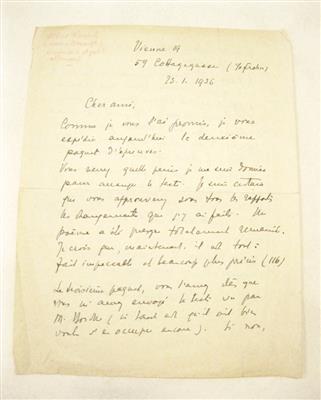 Vienne 19
59 Cottagegasse
23. 1. 1936
Cher ami,
Comme je vous l'ai promis, je vous
expédie aujourd'hui le deuxième
paquet d'épreuves.
Vous verrez quelle peine je me suis donnée
pour arranger le texte. Je suis certain
que vous approuverez sous tous les rapports
les changements que j'y ai faits. Un
poème a été presque totalement remanié.
Je crois que, maintenant, il est tout à
fait impeccable et beaucoup plus précis (116)
Le troisième paquet, vous l'aurez dès que
vous m'aurez envoyé le texte vu par
M. (si tant est qu'il ait bien
voulu s'en occuper encore). Si non,